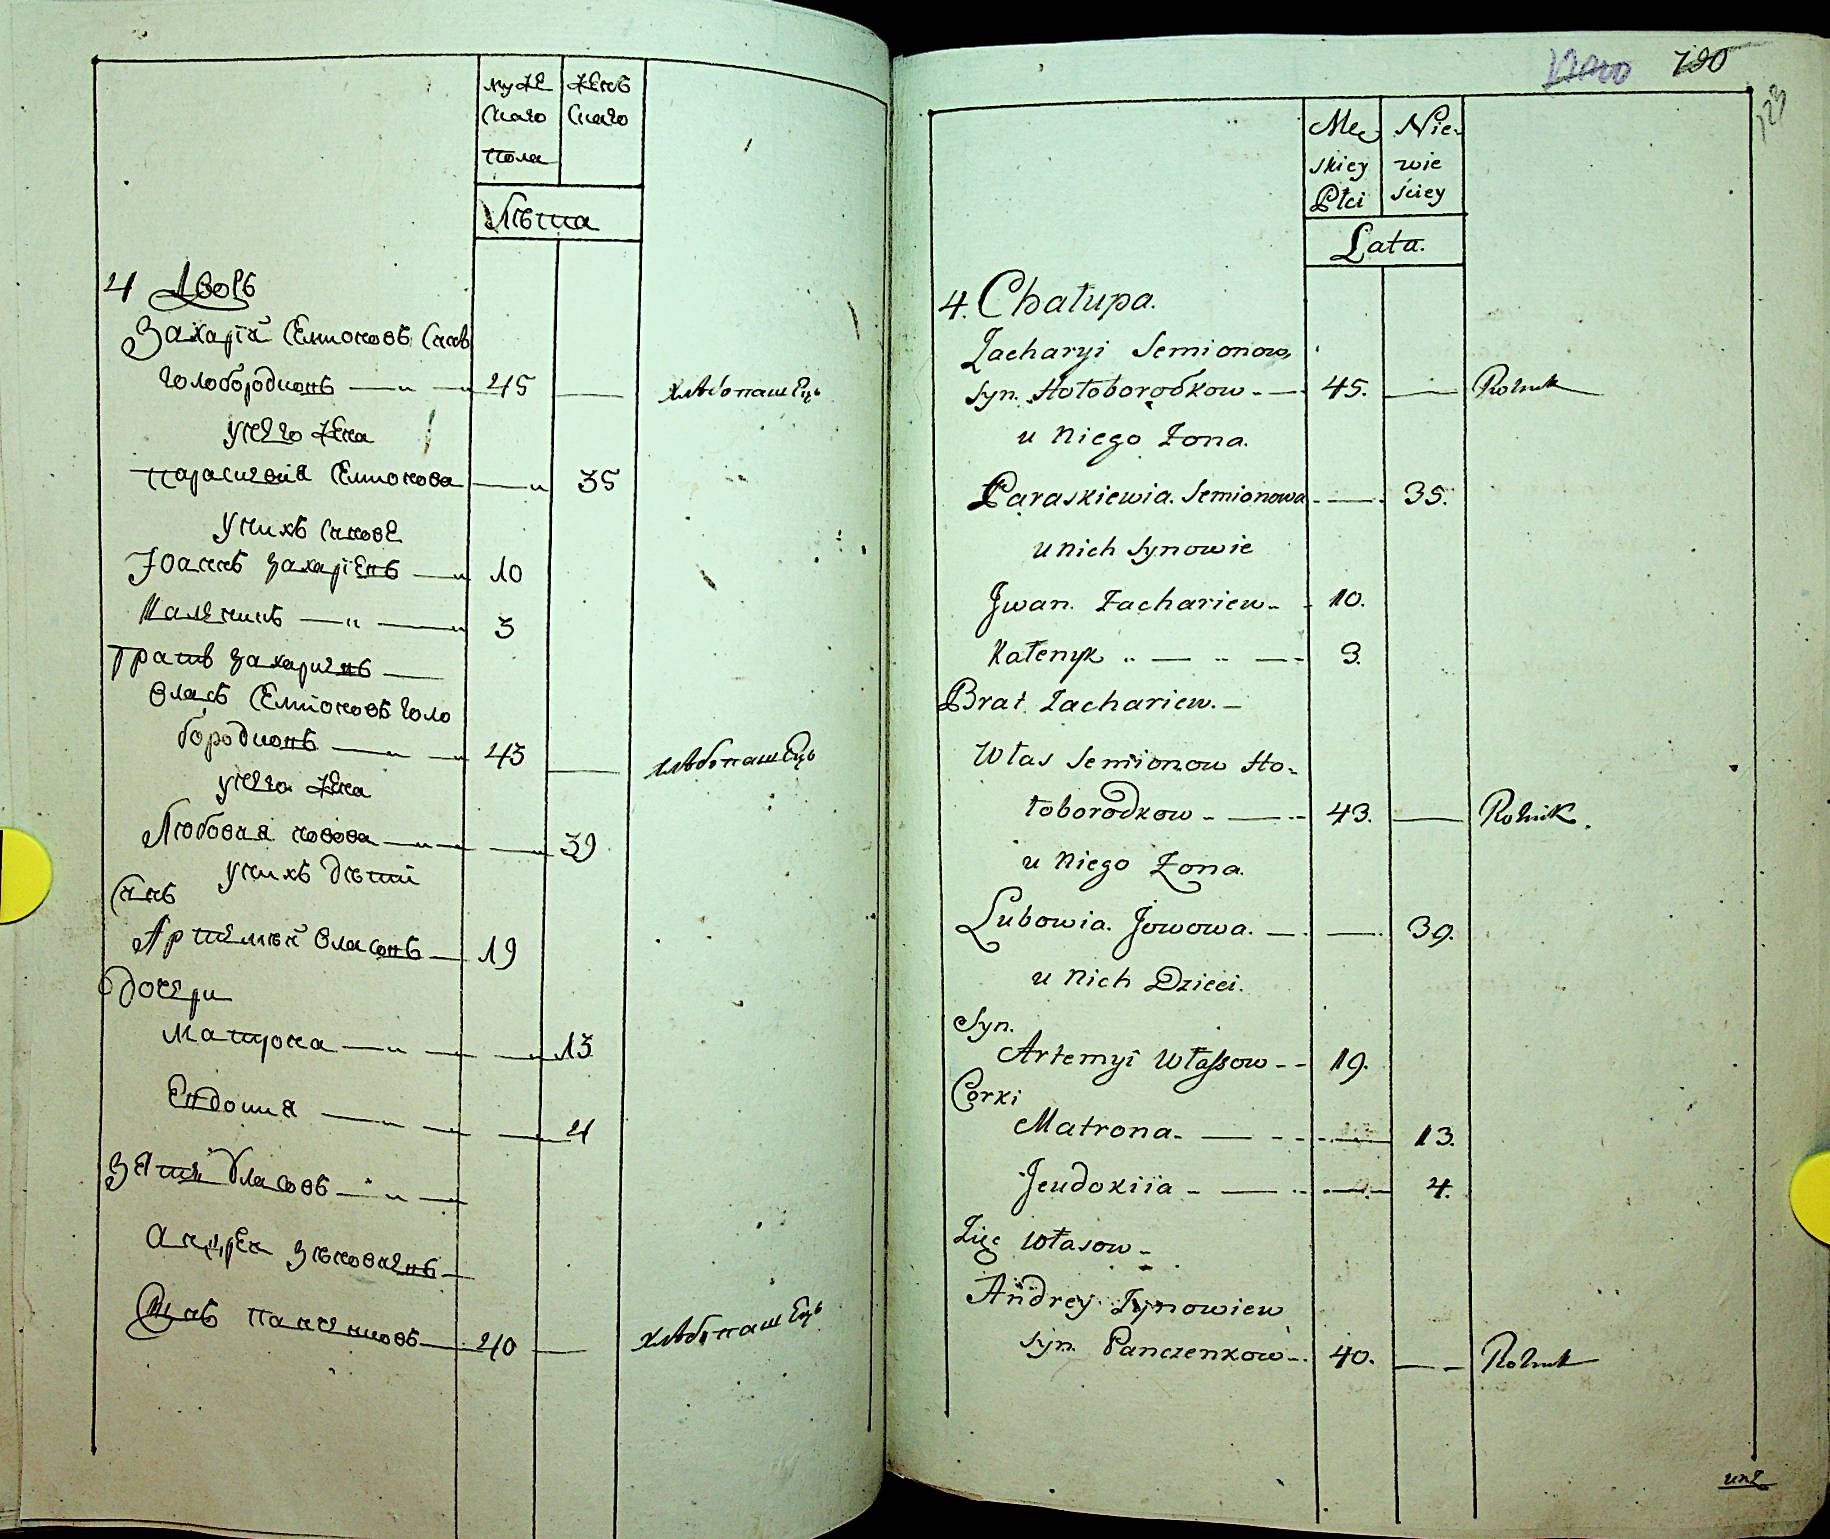 муже
скаго
пола
женъ
скаго
Лѣта
4 Дворъ
Захарій Семіоновъ синъ
голобородковъ — „ — 45 — хлѣбопашецъ
у него жена
параскевия Семионова — „ 35
у нихъ синове
Іоаннъ захаріевъ — „ 10
Каленикъ — „ — „ 3
братъ захариевъ —
власъ Семионовъ голо
бородковъ — „ — 43 — хлѣбопашецъ
у него жена
Любовия иовова — „ — 39
у нихъ дѣти
Синъ
Артемій власовъ — 19
дочери
матрона — „ — 13
Евдокия — „ — 4
зять власовъ — „ —
андрей зѣновиевъ —
Синъ панченковъ — 40 — хлѣбопашецъ
790
123
Mę-
skiey
Płci
Nie-
wie
ściey
Lata.
4. Chałupa.
Zacharyi Semionow,
syn. Hołoborodkow - — 45. — Rolnik
u niego Żona.
Paraskiewia. Semionowa - — 35.
u nich synowie
Jwan. Zachariew - - 10.
Kałenyk „ — „ — - 3.
Brat Zachariew. —
Włas Semionow Ho-
łoborodkow - — - 43. — Rolnik.
u niego Żona.
Lubowia. Jowowa. — — 39.
u nich Dzieci.
Syn.
Artemyi Własow - - 19.
Corki
Matrona. — - - — 13.
Jeudokiia - — - - — 4.
Zięć Własow -
Andrey Zynowiew
syn. Panczenkow - - 40. — Rolnik